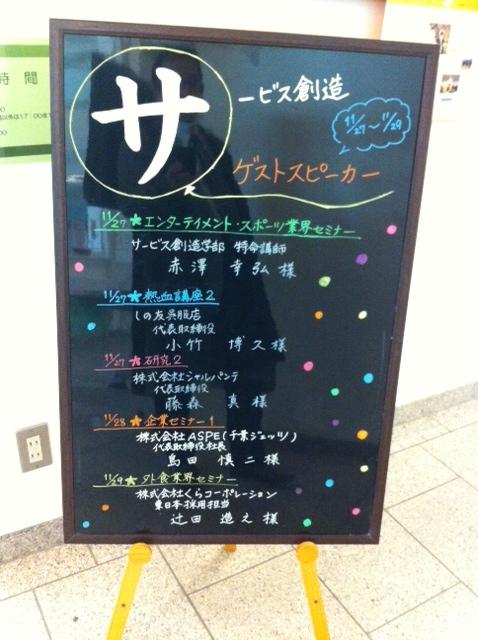 時間
サービス創造
11/27〜11/29
ゲストスピーカー
11/27★エンターテイメント・スポーツ業界セミナー
サービス創造学部 特命講師
赤澤 幸弘 様
11/27★熱血講座2
しの友呉服店
代表取締役
小竹 博久 様
11/27★研究2
株式会社シャルパンテ
代表取締役
藤森 真 様
11/28★企業セミナー1
株式会社ASPE(千葉ジェッツ)
代表取締役社長
島田 慎二 様
11/29★外食業界セミナー
株式会社くらコーポレーション
東日本採用担当
辻田 進之 様